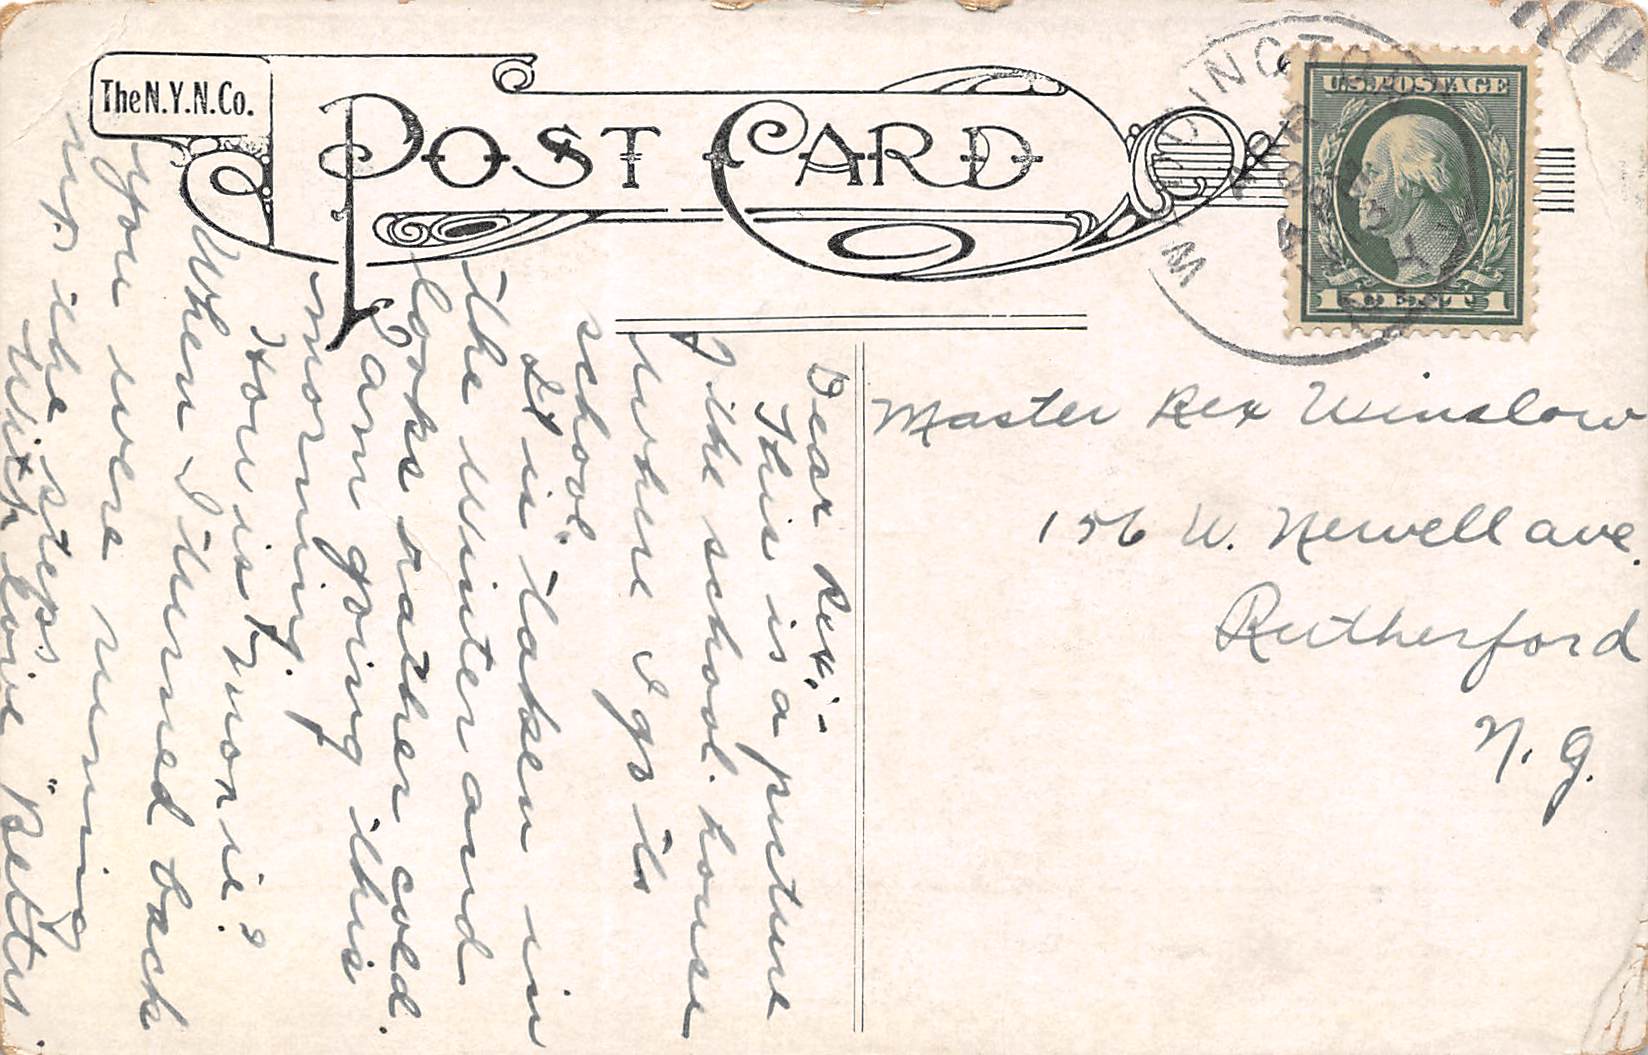 The N.Y.N.Co.
POST CARD
U.S. POSTAGE
1 CENT 1
Master Rex Winslow
156 W. Newell ave.
Rutherford
N. J.
Dear Rex:-
This is a picture
of the school house
where I go to
school.
It is taken in
the winter and
looks rather cold.
I am going this
morning.
How is
When I turned back
you were running
up the steps
With love "Bettis".